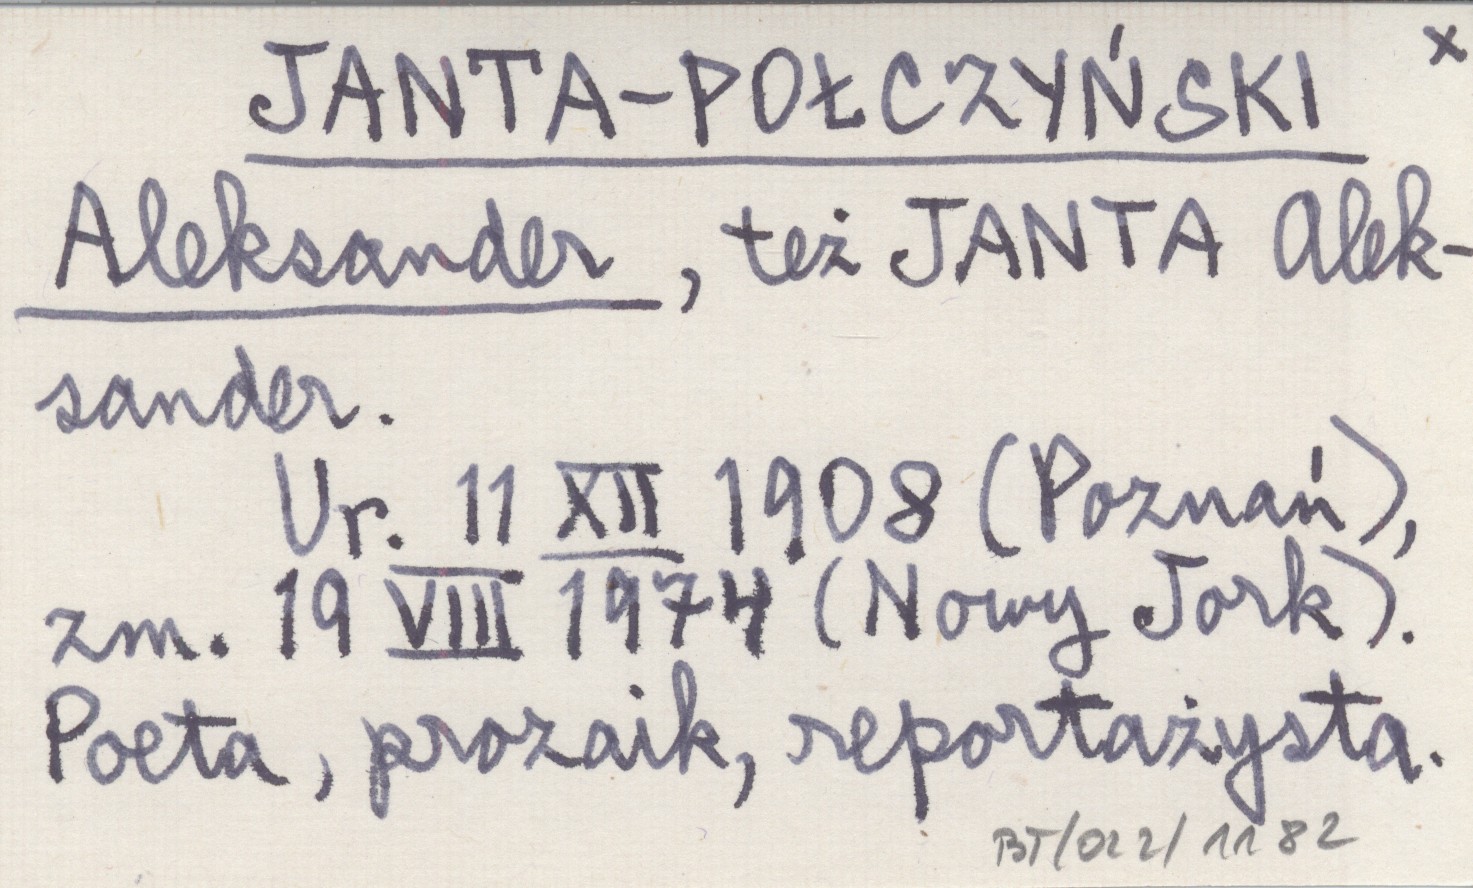 JANTA-POŁCZYŃSKI x
Aleksander, też JANTA Alek-
sander.
Ur. 11 XII 1908 (Poznań),
zm. 19 VIII 1974 (Nowy Jork).
Poeta, prozaik, reportażysta.
BT/022/1182